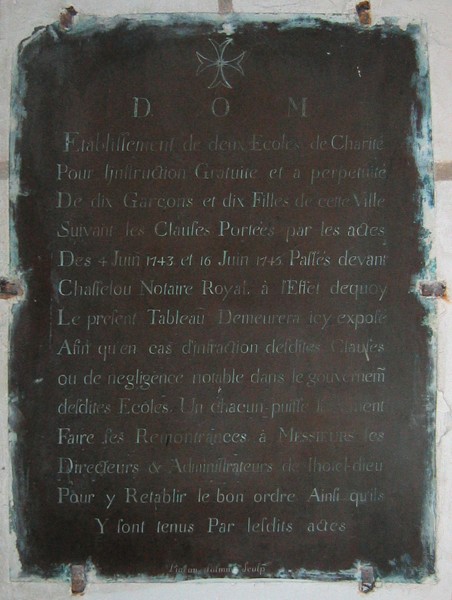 D O M
Etablissement de deux Ecoles de Charité
Pour Instruction Gratuite et a perpetuité
De dix Garçons et dix Filles de cette Ville
Suivant les Clauses Portées par les actes
Des 4 Juin 1743 et 16 Juin 1745 Passés devant
Chasselou Notaire Royal à l'Effet dequoy
Le present Tableau Demeurera icy exposé
Afin qu'en cas d'infraction desdites Clauses
ou de negligence notable dans le gouvernem̃
desdites Ecoles Un chacun puisse
Faire ses Remontrances à Messieurs les
Directeurs & Administrateurs de lhotel-dieu
Pour y Retablir le bon ordre Ainsi quils
Y sont tenus Par lesdits actes
Sculp